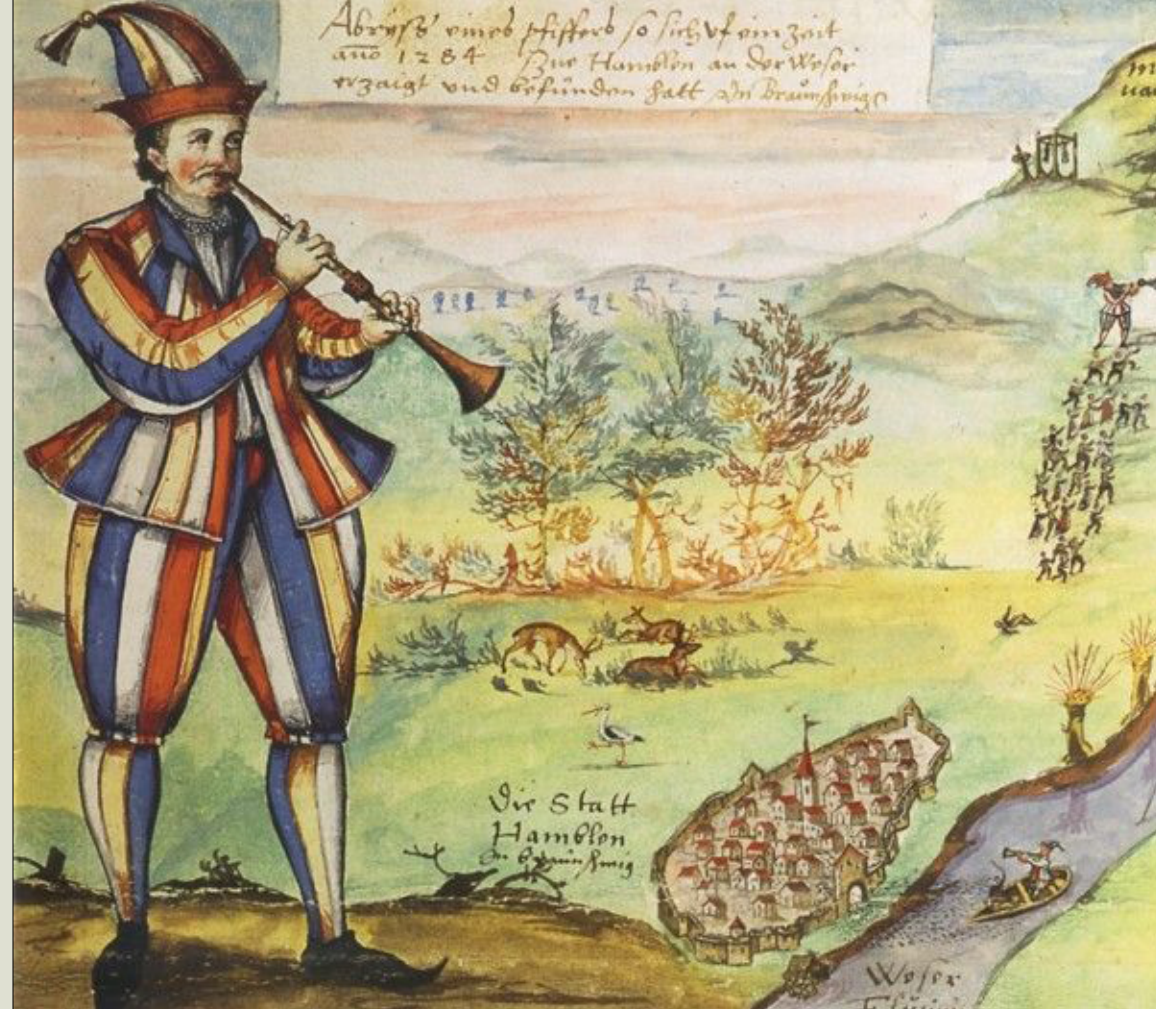 Abryss eines pfiffers so sich vf ein Zeit
año 1284 Zue Hamblen an der Weser
erzaigt vnd befunden hatt In Braunschwig
Die Statt
Hamblen
In braunschwig
Weser